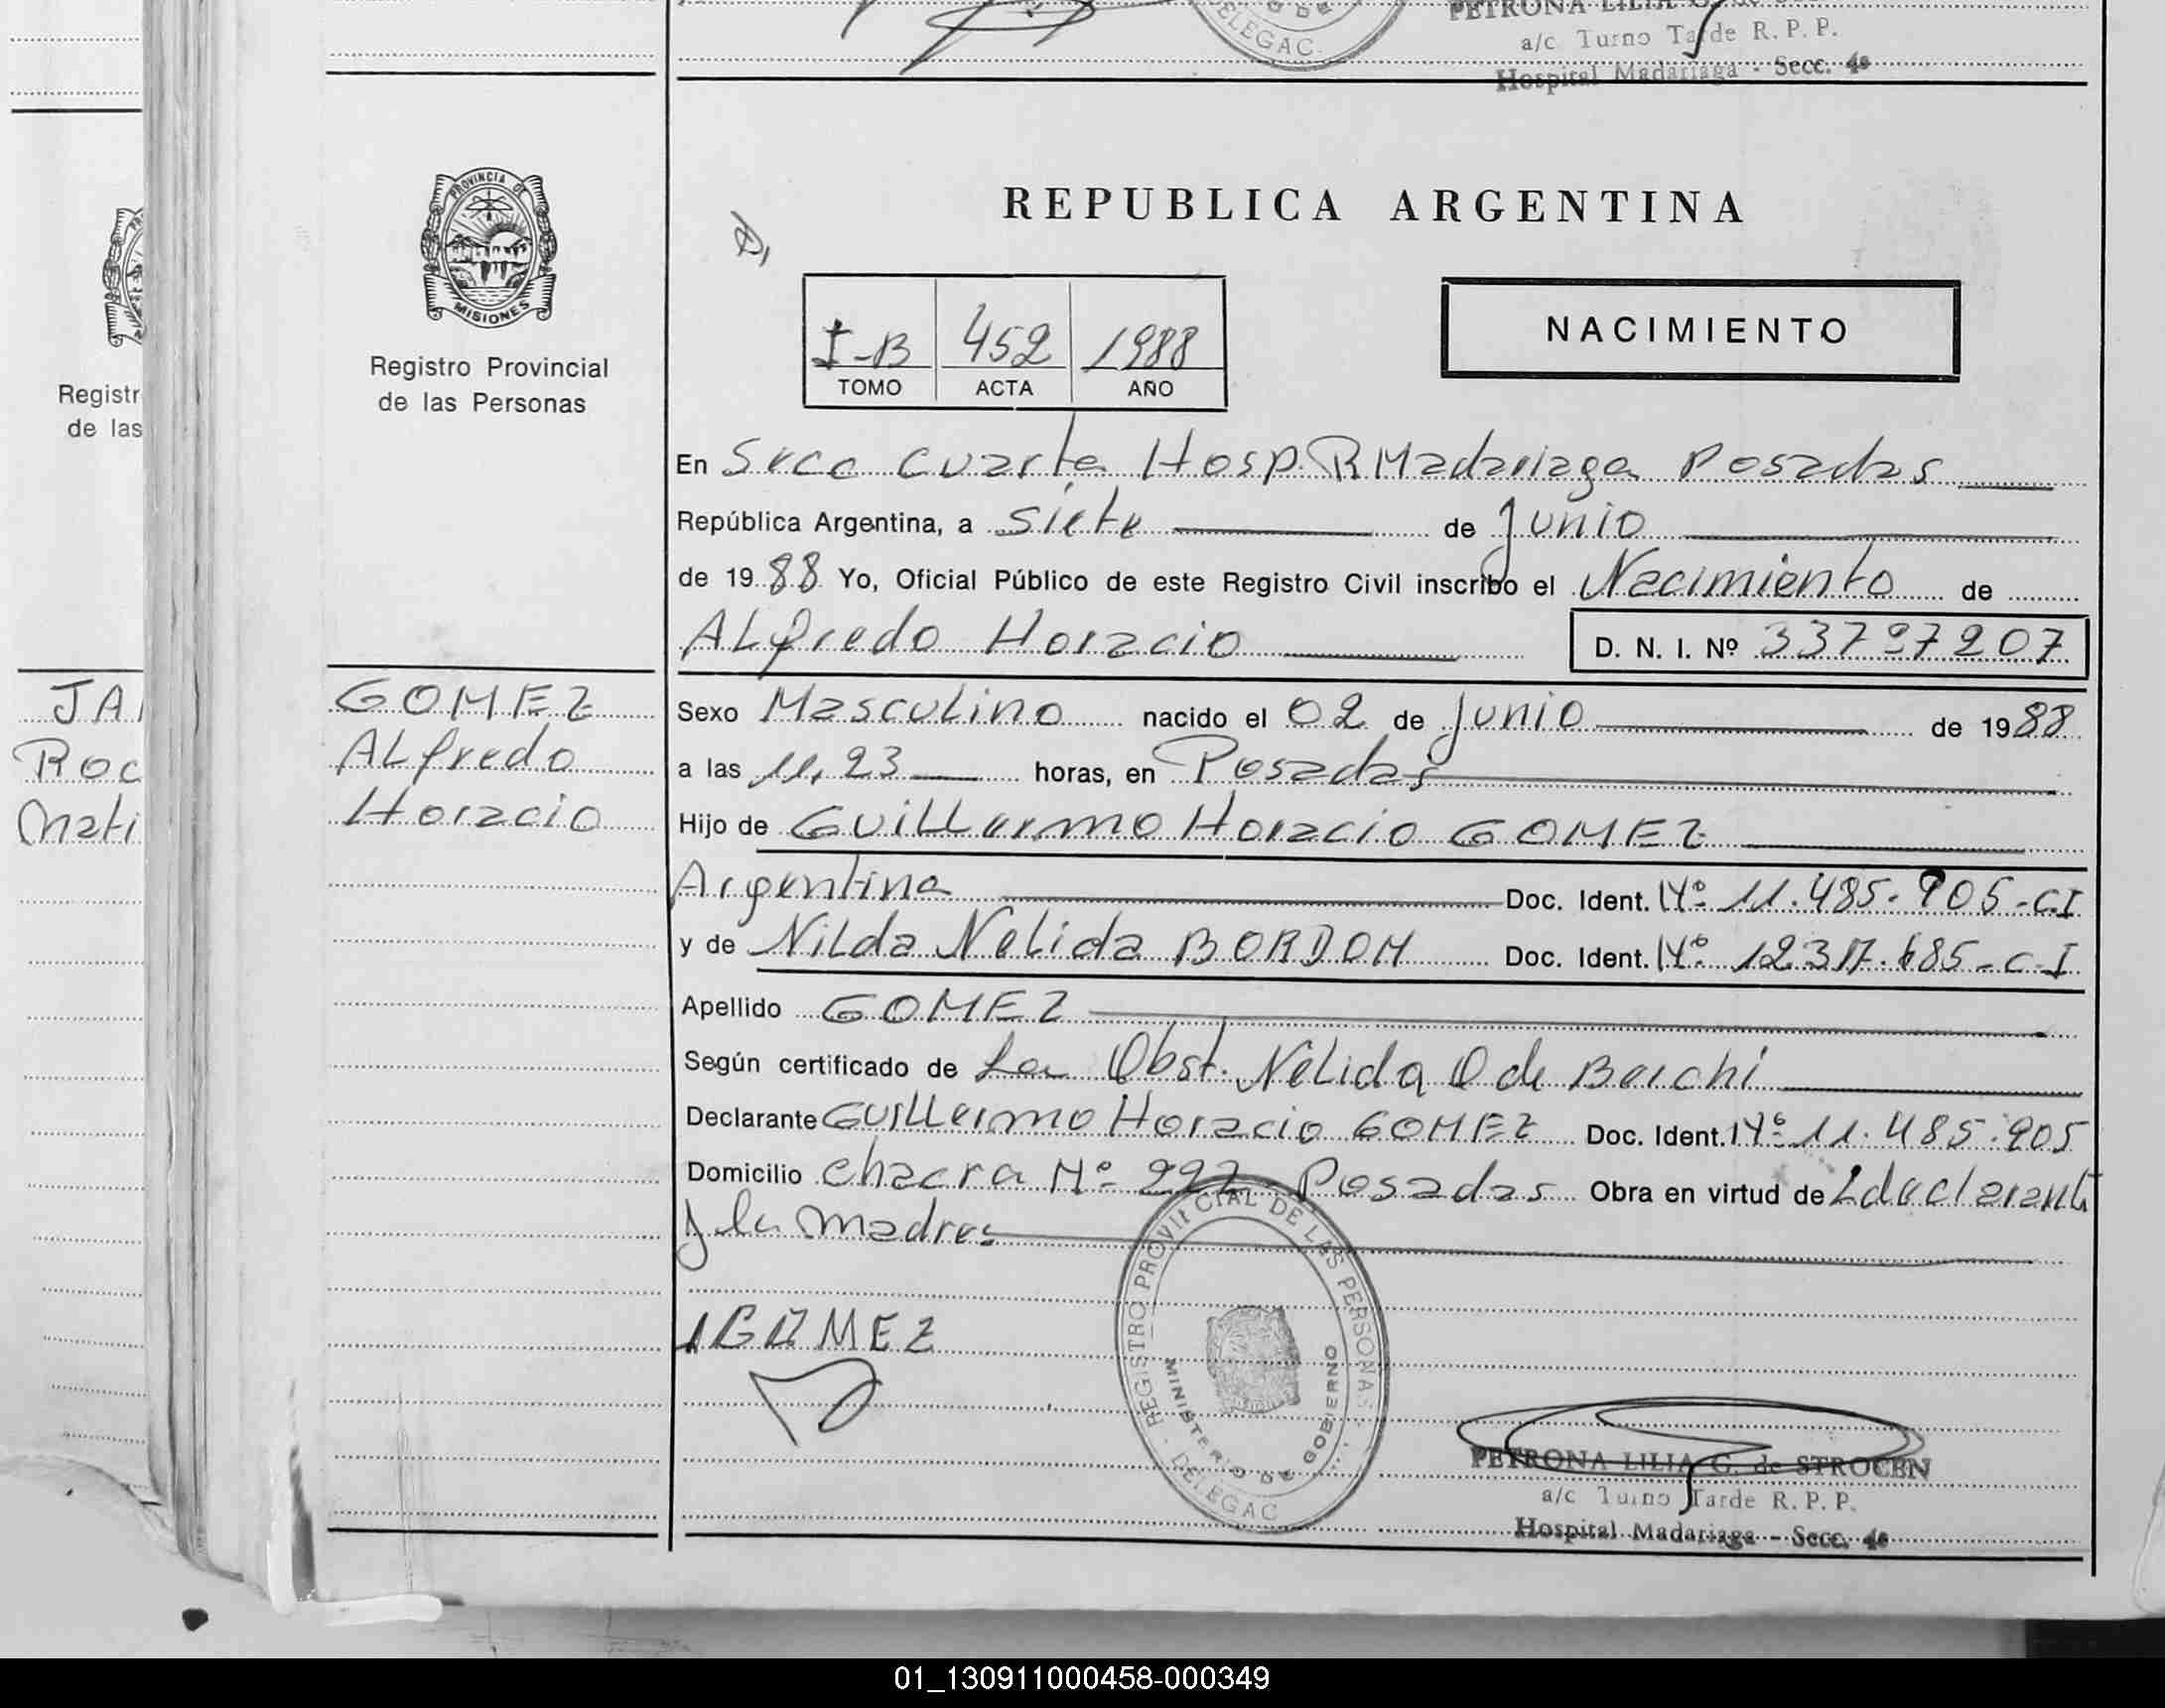 PETRONA LILIA G. de
a/c Turno Tarde R. P. P.
Hospital Madariaga - Secc. 4a
ELEGAC.
PROVINCIA DE
MISIONES
Registro Provincial
de las Personas
Registr
de las
REPUBLICA ARGENTINA
I-B 452 1988
TOMO ACTA AÑO
NACIMIENTO
En Secc cuarta Hosp. R Madariaga Posadas
República Argentina, a siete de junio
de 1988 Yo, Oficial Público de este Registro Civil inscribo el Nacimiento de
ALfredo Horacio D. N. I. Nº 33797207
JA
Roc
Mati
GOMEZ
ALfredo
Horacio
Sexo Masculino nacido el 02 de junio de 1988
a las 11,23 horas, en Posadas
Hijo de GuiLLermo Horacio GOMEZ
Argentina Doc. Ident. Nº 11.485.905-C.I
y de NiLda NeLida BORDON Doc. Ident. Nº 12.317.685-C-I
Apellido GOMEZ
Según certificado de La Obst. NeLida O de Barchi
Declarante GuiLLermo Horacio GOMEZ Doc. Ident. Nº 11.485.905
Domicilio chacra Nº 227 Posadas Obra en virtud de L declarant
y la madre
GOMEZ
REGISTRO PROVINCIAL DE LAS PERSONAS
MINISTERIO DE GOBIERNO
DELEGAC
PETRONA LILIA G. de STROCEN
a/c Turno Tarde R. P. P.
Hospital Madariaga - Secc. 4a
01_130911000458-000349